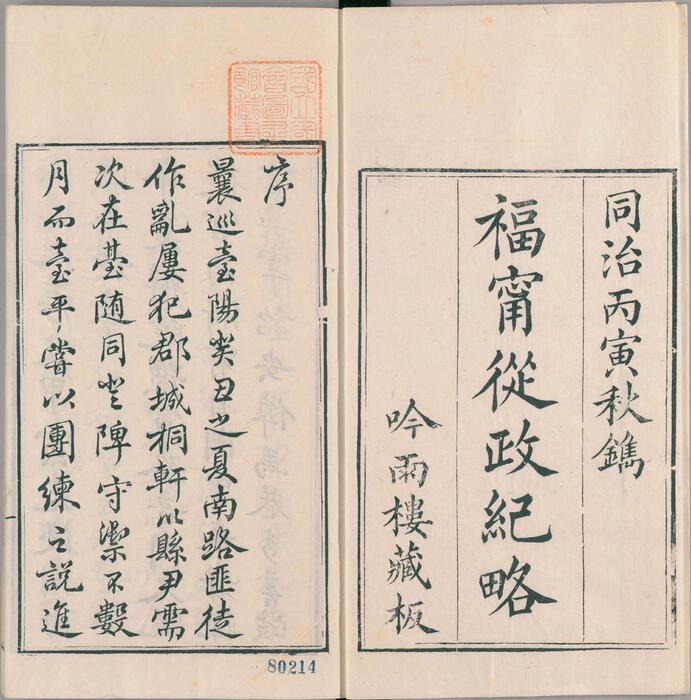 同治丙寅秋鐫
福甯從政紀略
吟雨樓藏板
序
曩巡臺陽癸丑之夏南路匪徒
作亂屢犯郡城桐軒以縣尹需
次在臺随同登陴守禦不數
月而臺平嘗以團練之説進
80214